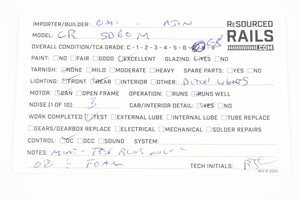 RESOURCED
RAILS
.COM
IMPORTER/BUILDER: OMI - AJIN
MODEL: CR SD60M
OVERALL CONDITION/TCA GRADE: C - 1 - 2 - 3 - 4 - 5 - 6 - 7 - 8
PAINT: NO FAIR GOOD EXCELLENT GLAZING: YES NO
TARNISH: NONE MILD MODERATE HEAVY SPARE PARTS: YES NO
LIGHTING: FRONT REAR INTERIOR OTHER: DITCH LIGHTS
MOTOR: CAN OPEN FRAME OPERATION: RUNS RUNS WELL
NOISE (1 OF 10): 3 CAB/INTERIOR DETAIL: YES NO
WORK COMPLETED: TEST EXTERNAL LUBE INTERNAL LUBE TUBE REPLACE
GEARS/GEARBOX REPLACE ELECTRICAL MECHANICAL SOLDER REPAIRS
CONTROL: DC DCC SOUND SYSTEM:
NOTES: MINT - TEST RUNS ONLY -
OB : FOAM
TECH INITIALS:
REV B. 2025